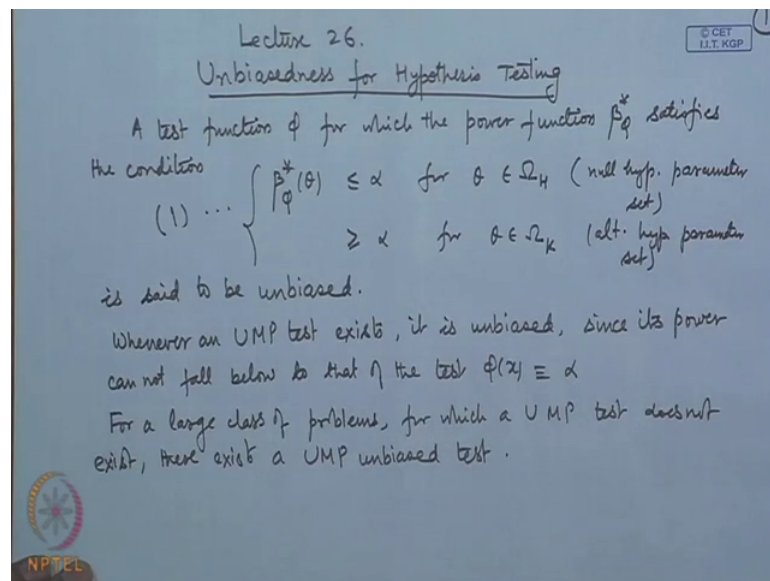 Lecture 26.
© CET
I.I.T. KGP
1
Unbiasedness for Hypothesis Testing
A test function φ for which the power function β*_φ satisfies
the condition
(1) ... { β*_φ(θ) ≤ α for θ ∈ Ω_H (null hyp. parameter
set)
≥ α for θ ∈ Ω_K (alt. hyp parameter
set)
is said to be unbiased.
Whenever an UMP test exists, it is unbiased, since its power
can not fall below to that of the test φ(x) ≡ α
For a large class of problems, for which a UMP test does not
exist, there exist a UMP unbiased test.
NPTEL